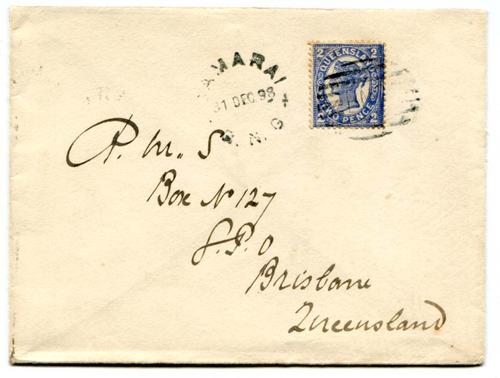 SAMARAI
31 DEC 98
B.N.G
2 QUEENSLAND 2
TWO PENCE
P. M. S
Box No 127
G.P.O
Brisbane
Queensland